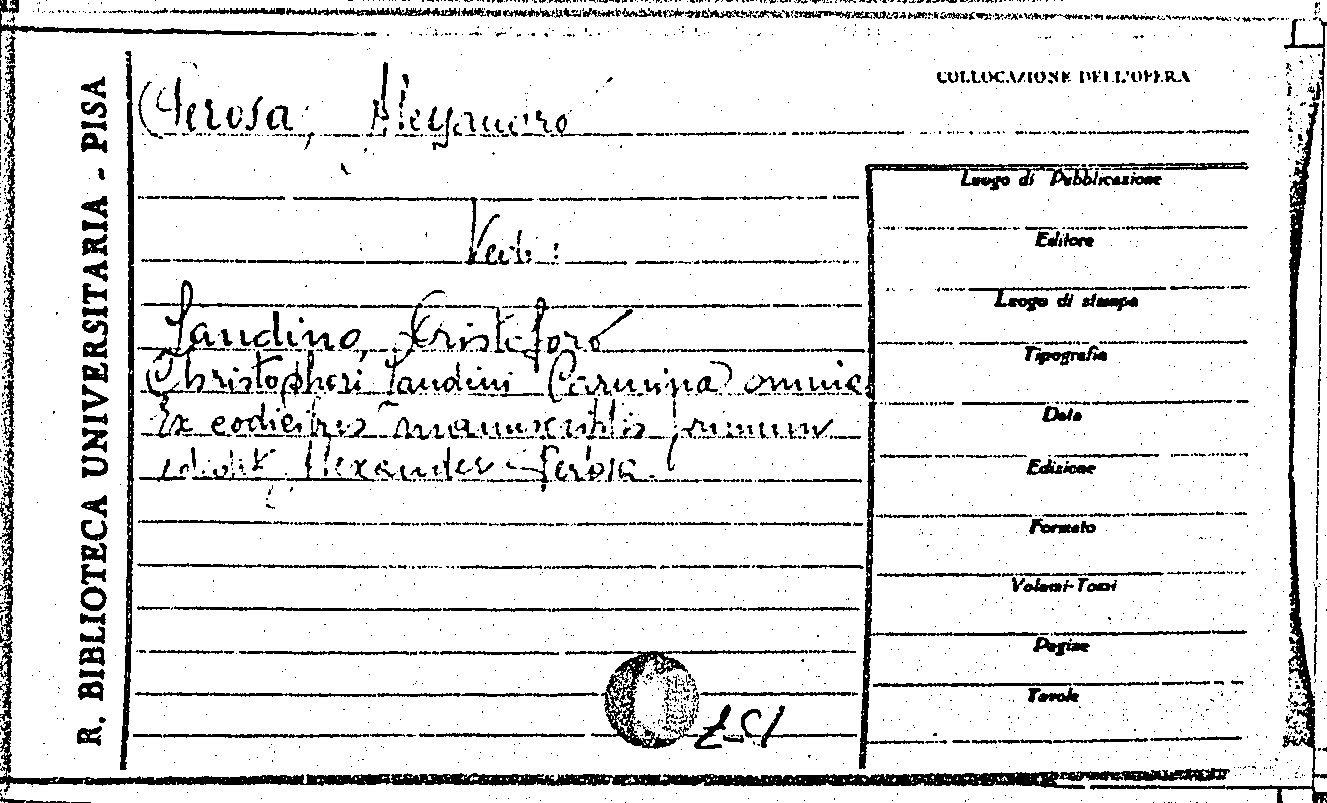 R. BIBLIOTECA UNIVERSITARIA - PISA
COLLOCAZIONE DELL'OPERA
(Perosa, Alessandro
Vedi:
Landino, Cristoforo
Christophori Landini Carmina omnia
Ex codicibus manuscriptis primum
edidit Alexander Perosa.
Luogo di Pubblicazione
Editore
Luogo di stampa
Tipografia
Data
Edizione
Formato
Volumi-Tomi
Pagine
Tavole